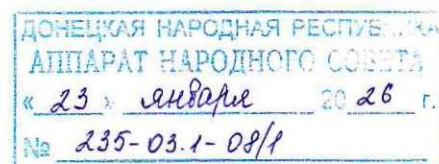 ДОНЕЦКАЯ НАРОДНАЯ
АППАРАТ НАРОДНОГО СОВЕТА
« 23 » января 20 26 г.
№ 235-03.1-08/1